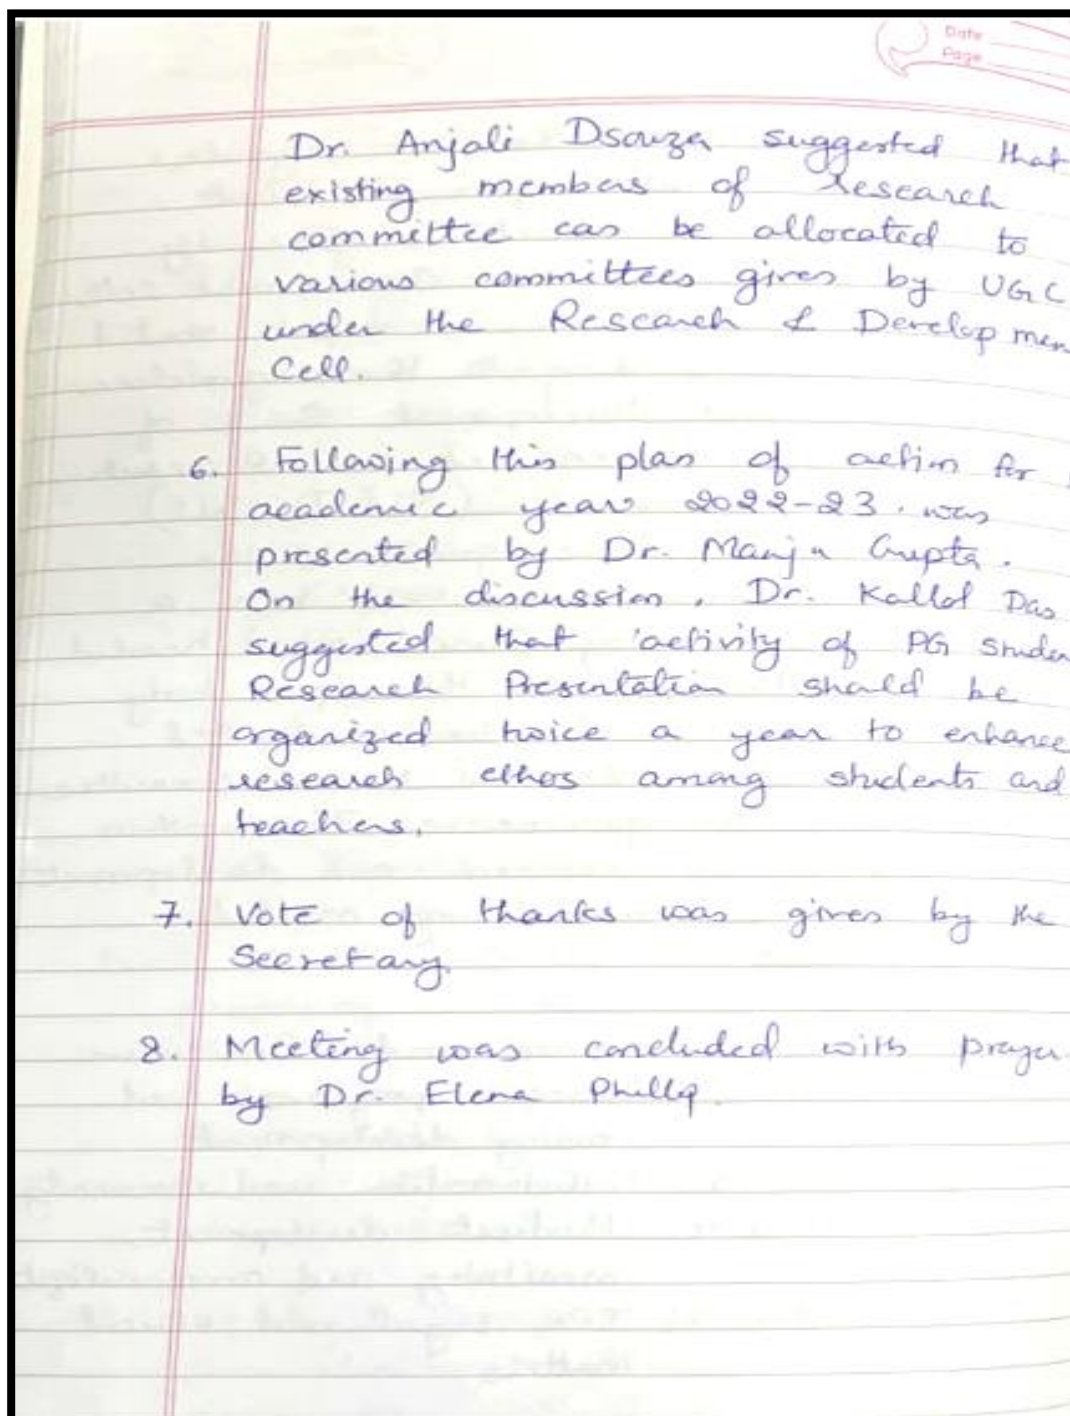 Date
Page
Dr. Anjali Dsouza suggested that
existing members of research
committee can be allocated to
various committees given by UGC
under the Research & Developmen
Cell.
6. Following this plan of action for
academic year 2022-23. was
presented by Dr. Manju Gupta.
On the discussion, Dr. Kallol Das
suggested that 'activity of PG Studen
Research Presentation should be
organized twice a year to enhance
research ethos among students and
teachers.
7. Vote of thanks was given by the
Secretary.
8. Meeting was concluded with prayer
by Dr. Elena Philip.